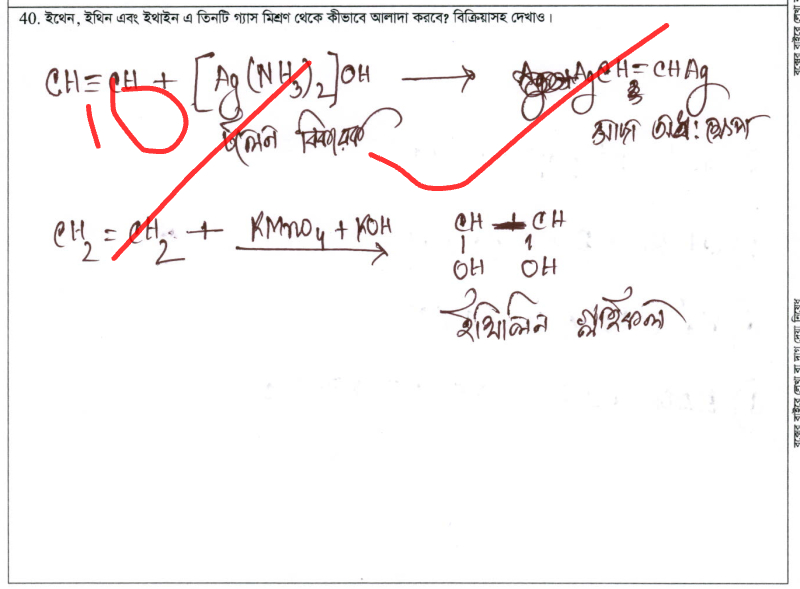 40. ইথেন, ইথিন এবং ইথাইন এ তিনটি গ্যাস মিশ্রণ থেকে কীভাবে আলাদা করবে? বিক্রিয়াসহ দেখাও।
CH≡CH + [Ag(NH3)2]OH ⟶ AgCH=CHAg
টলেন বিকারক সাদা অধ:ক্ষেপ
10
CH2=CH2 + KMnO4 + KOH ⟶ CH + CH
OH OH
ইথিলিন গ্লাইকল